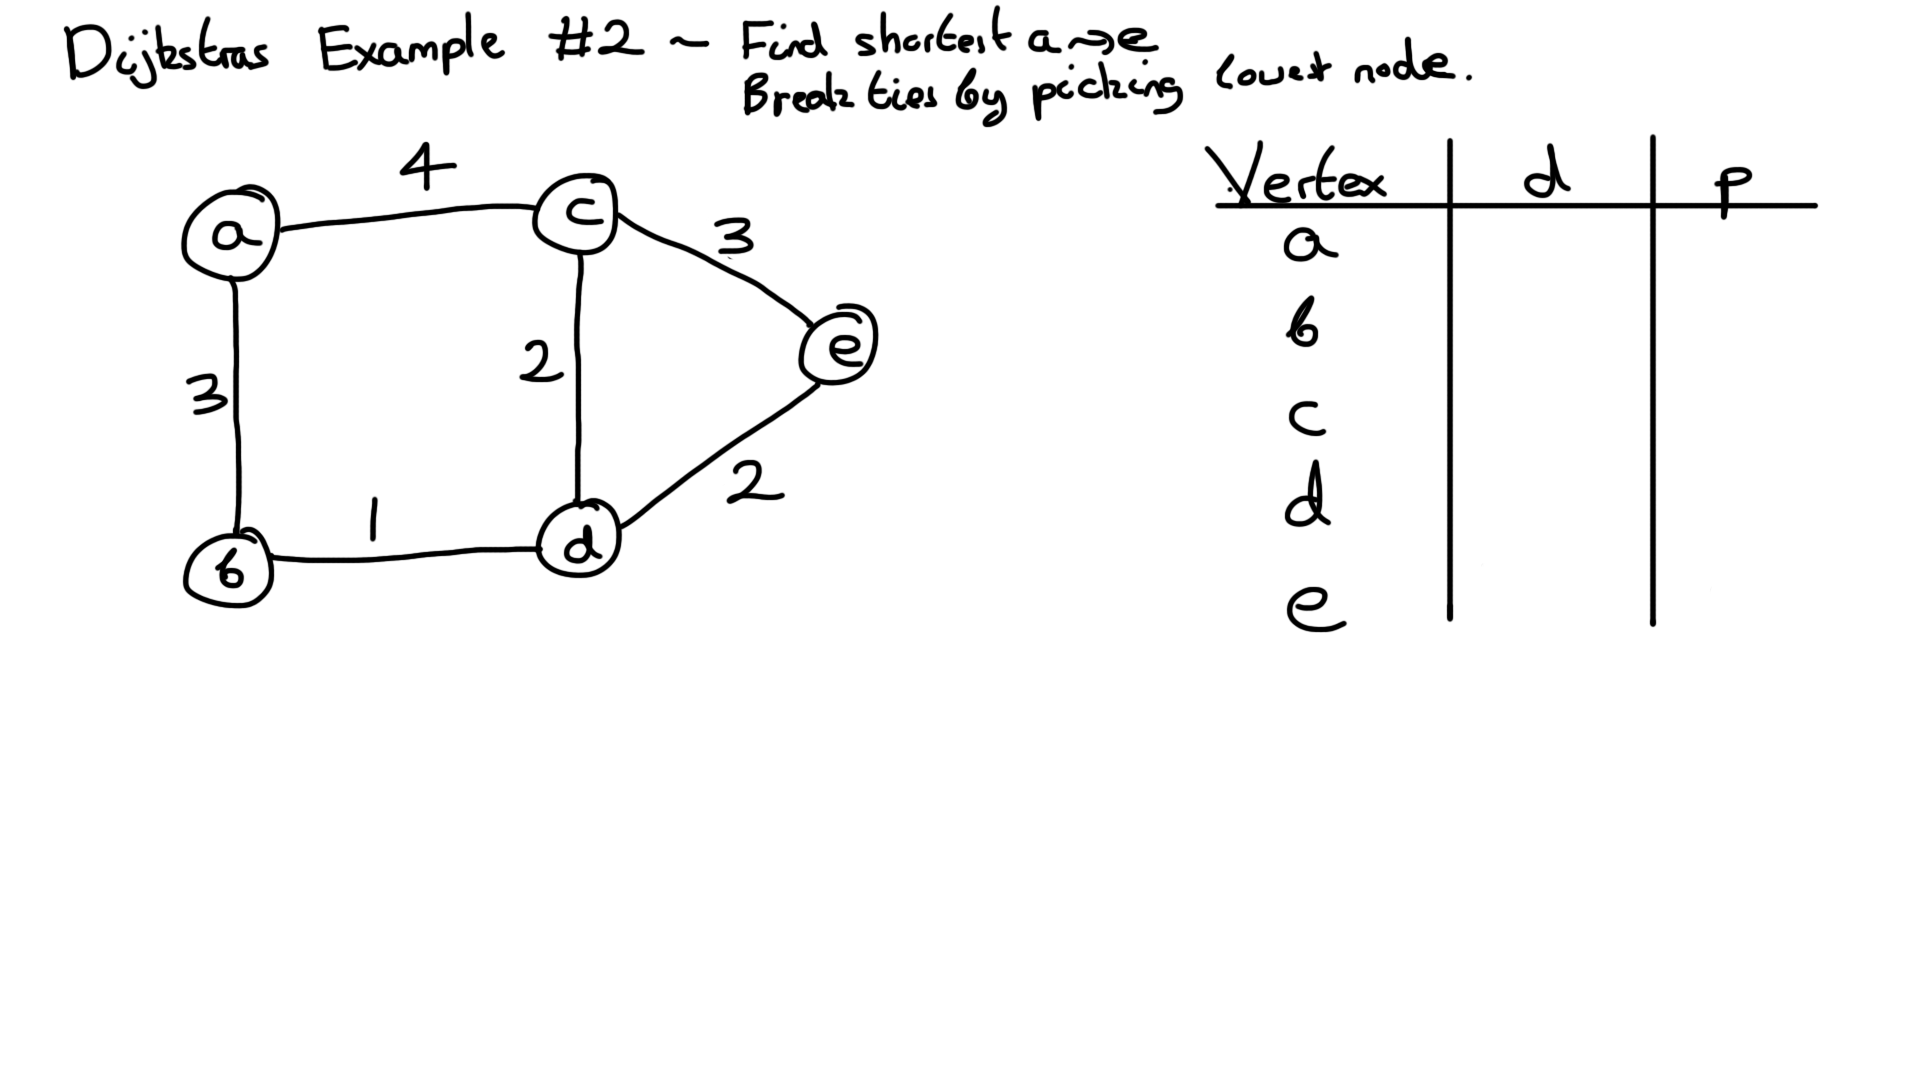 Dijkstras Example #2 ~ Find shortest a⤳e
Break ties by picking lowest node.
4
a
c
3
e
3
2
2
1
b
d
Vertex d p
a
b
c
d
e